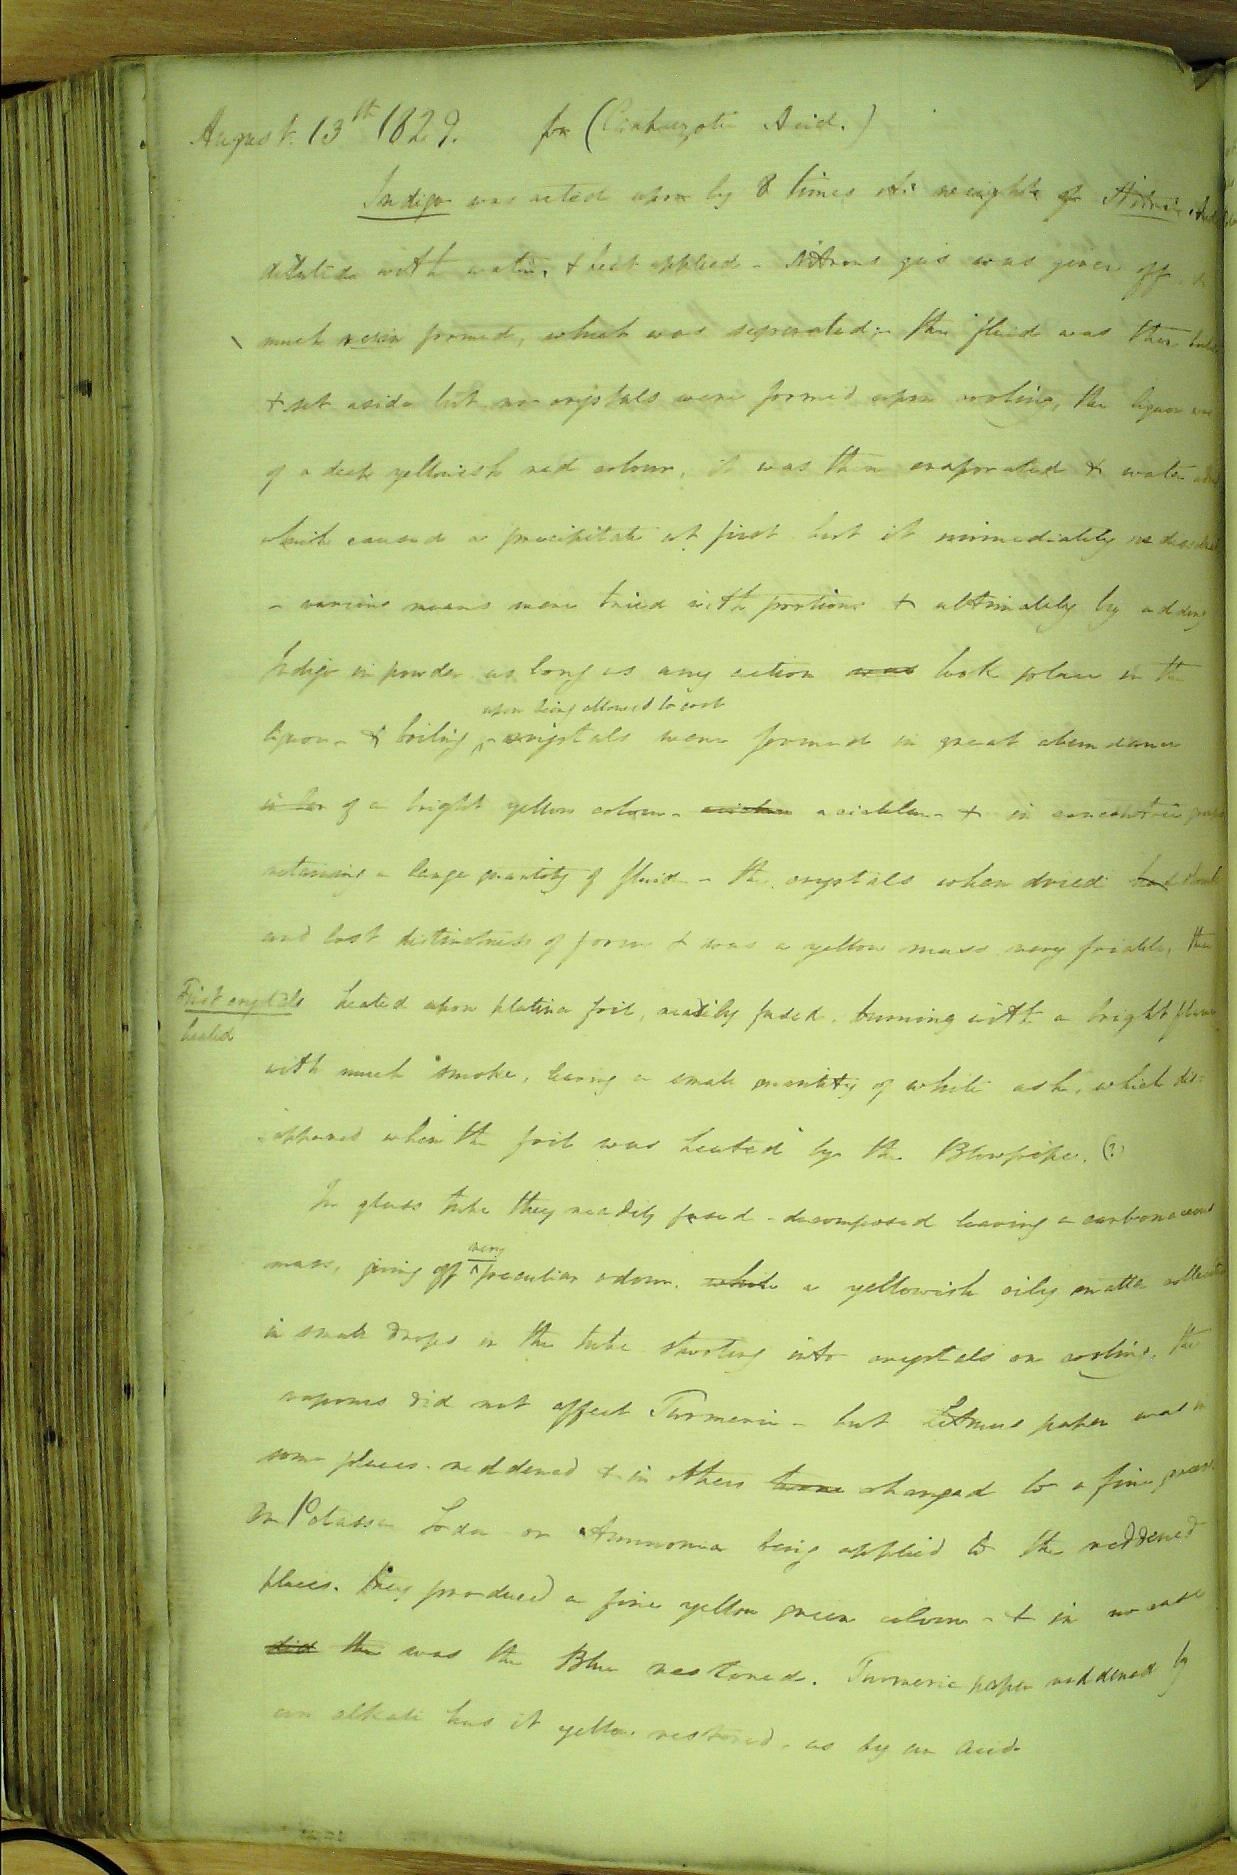 August. 13th 1829. for (Carbazotic Acid.)
Indigo was acted upon by 8 times its weight of Nitric Acid
diluted with water, & heat applied - Nitrous gas was given off, &
much resin formed, which was separated - the fluid was then
& set aside but no crystals were formed upon cooling, the liquor was
of a deep yellowish red colour, it was then evaporated & water added
which caused a precipitate at first but it immediately redissolved
- various means were tried with portions & ultimately by adding
Indigo in powder as long as any action was took place in the
upon being allowed to cool
liquor - & boiling, - crystals were formed in great abundance
of a bright yellow colour - acicular - & in concentric groups
retaining a large quantity of fluid - the crystals when dried had
and lost distinctness of form & was a yellow mass very friable, then
First crystals heated upon platina foil, readily fused, burning with a bright flame
heated
with much smoke, leaving a small quantity of white ash, which dis=
=appeared when the foil was heated by the Blowpipe. (?)
In glass tube they readily fused - decomposed leaving a carbonaceous
very
mass, giving off peculiar odour, while a yellowish oily matter collected
in small drops in the tube shooting into crystals on cooling, the
vapours did not affect Turmeric - but Litmus paper was in
some places reddened & in others changed to a fine green
on Potassa Soda or Ammonia being applied to the reddened
places. they produced a fine yellow green colour - & in no case
did the was the Blue restored. Turmeric paper reddened by
an alkali has it yellow restored, as by an acid